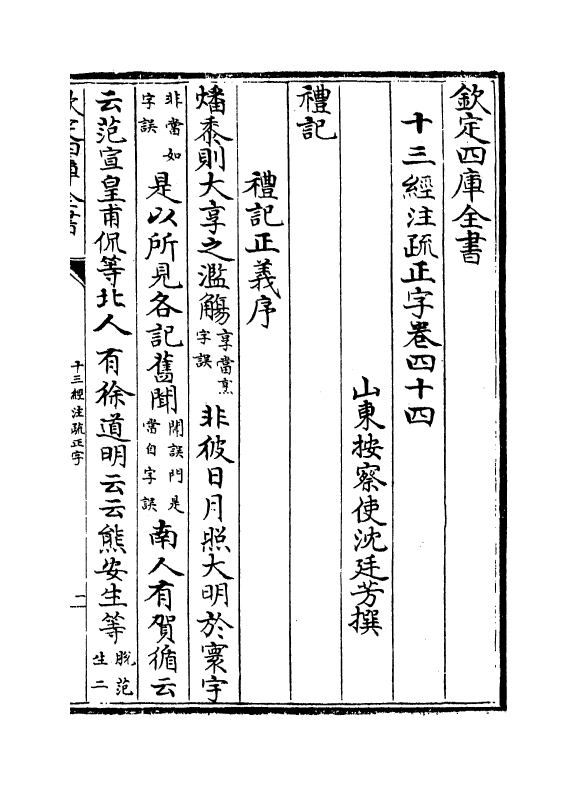 欽定四庫全書
十三經注疏正字卷四十四
山東按察使沈廷芳撰
禮記
禮記正義序
燔黍則大享之濫觴享當烹字誤非彼日月照大明於寰宇
非當如字誤是以所見各記舊聞聞誤門是當自字誤南人有賀循云
云范宣皇甫侃等北人有徐道明云云熊安生等脫范生二
十三經注疏正字